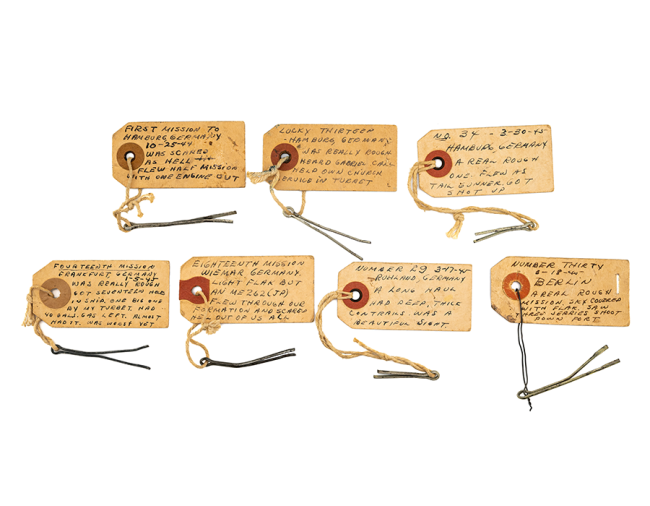 FIRST MISSION TO
HAMBURG GERMANY
10-25-44
WAS SCARED
AS HELL
FLEW HALF MISSION
WITH ONE ENGINE OUT
LUCKY THIRTEEN
HAMBURG, GERMANY
WAS REALLY ROUGH
HEARD GABRIEL CALL
HELD OWN CHURCH
SERVICE IN TURRET
NO. 34 - 3-30-45
HAMBURG GERMANY
A REAL ROUGH
ONE. FLEW AS
TAIL GUNNER. GOT
SHOT UP
FOURTEENTH MISSION
FRANKFURT, GERMANY
1-5-45
WAS REALLY ROUGH
GET SEVENTEEN HOLES
IN SHIP, ONE BIG ONE
BY MY TURRET. HAD
40 GALS. GAS LEFT. ALMOST
HAD IT. WAS
EIGHTEENTH MISSION
WIEMAR GERMANY.
LIGHT FLAK BUT
AN ME262 (JP)
FLEW THROUGH OUR
FORMATION AND SCARED
HELL OUT OF US ALL
NUMBER 29 3-17-45
RUHLAND, GERMANY
A LONG HAUL
HAD DEEP, THICK
CONTRAILS. WAS A
BEAUTIFUL SIGHT.
NUMBER THIRTY
3-18-45
BERLIN
A REAL ROUGH
MISSION. SKY COVERED
WITH FLAK. SAW
THREE JERRIES SHOOT
DOWN FORT